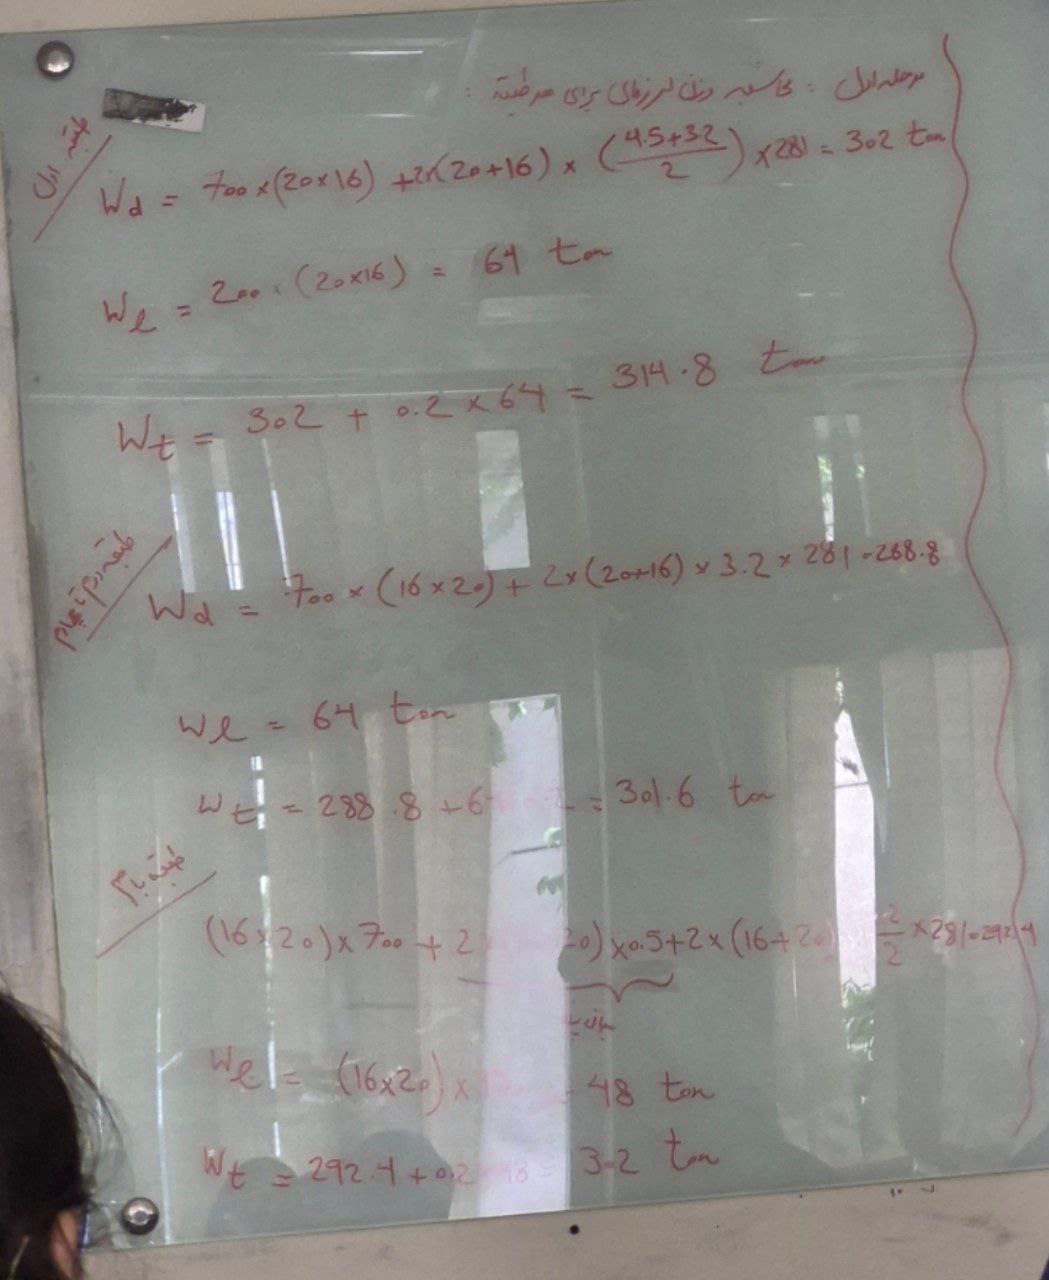 مرحله اول : محاسبه وزن لرزه‌ای برای هر طبقه :
طبقه اول
Wd = 700 × (20×16) + 2×(20+16) × (4.5+3.2 / 2) × 281 = 302 ton
Wl = 200 × (20×16) = 64 ton
Wt = 302 + 0.2 × 64 = 314.8 ton
Wd = 700 × (16×20) + 2×(20+16) × 3.2 × 281 = 288.8
Wl = 64 ton
Wt = 288.8 + 6 = 301.6 ton
طبقه بام
(16×20)×700 + 2 20)×0.5+2×(16+20) 2/2 ×281=292.4
Wl = (16×20)× = 48 ton
Wt = 292.4 + 0.2 × 48 = 302 ton